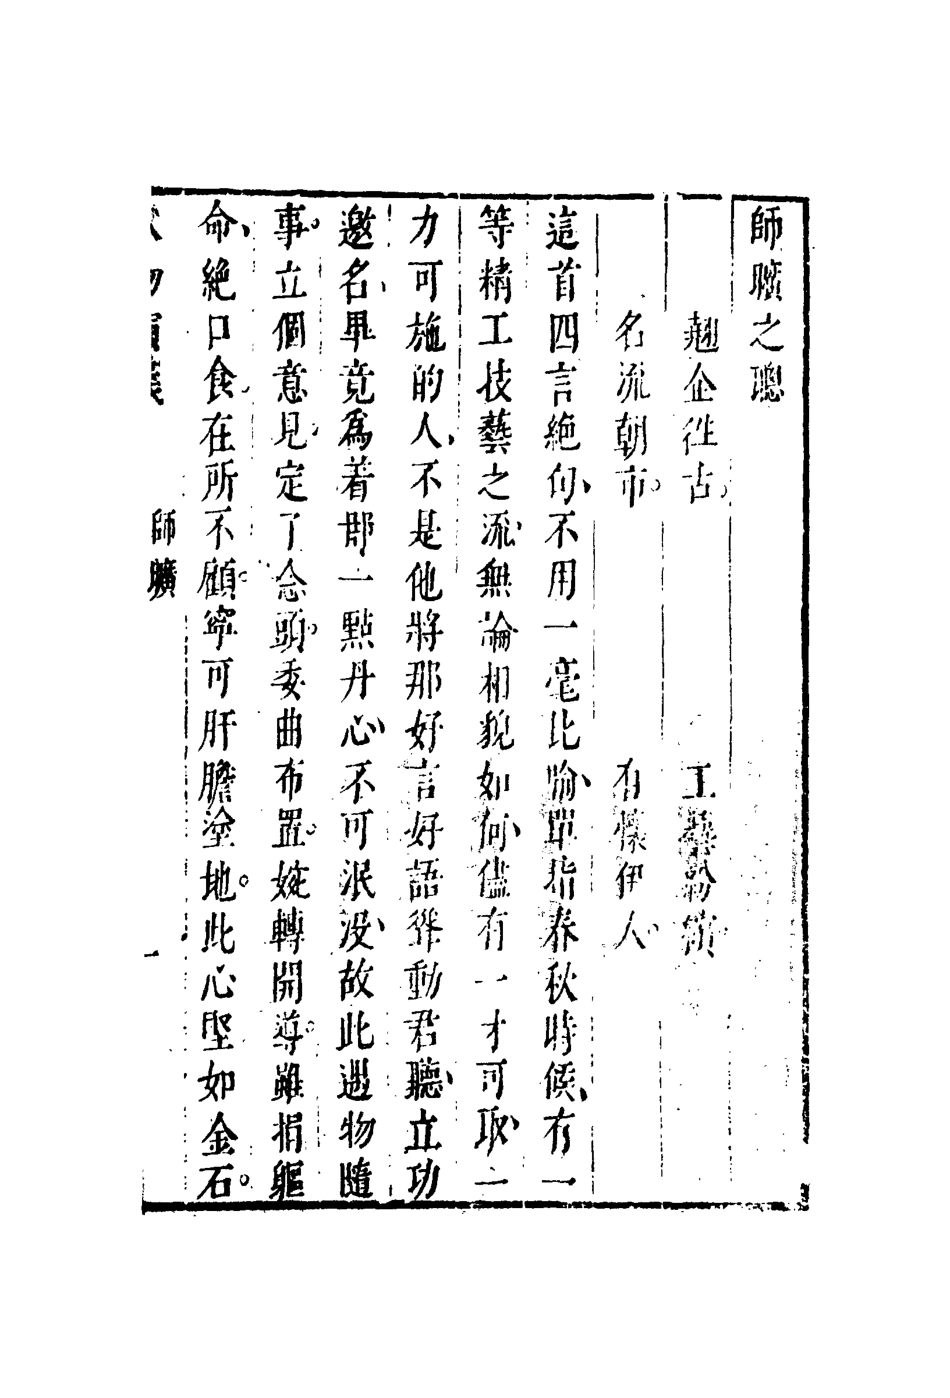 師曠之聰
翹企徃古。　工藝紛繽
名流朝市。　有懷伊人
這首四言絶句、不用一毫比喻、單指春秋時候、有一
等精工技藝之流、無論相貌如何、儘有一才可取、一
力可施的人、不是他將那好言好語聳動君聽、立功
邀名、畢竟爲着那一點丹心、不可泯没、故此遇物隨
事。立個意見、定了念頭。委曲布置。婉轉開導。雖捐軀
命、絶口食、在所不顧。寧可肝膽塗地。此心堅如金石。
師曠
一